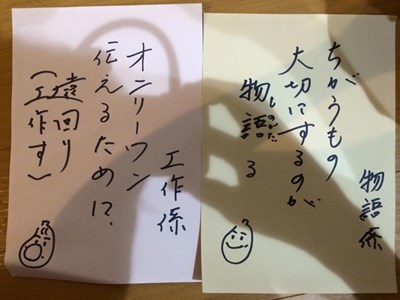 物語係
ちがうもの
大切にするのが
物語る
ものがた
工作係
オンリーワン
伝えるために、
遠回り
(工作す)